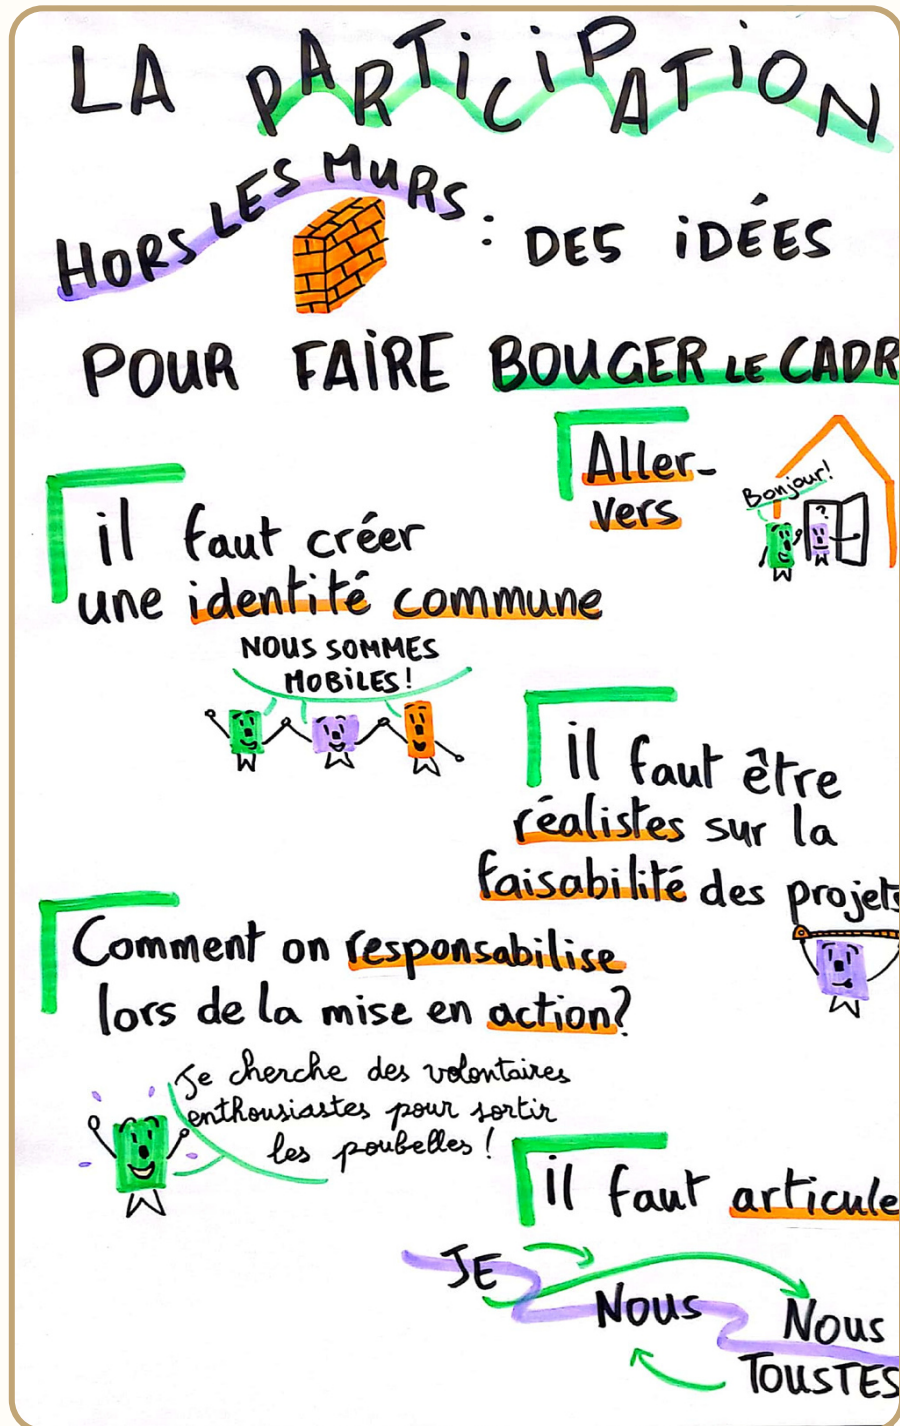 LA PARTICIPATION
HORS LES MURS : DES IDÉES
POUR FAIRE BOUGER LE CADR
Aller-
vers
Bonjour!
?
il faut créer
une identité commune
NOUS SOMMES
MOBILES!
il faut être
réalistes sur la
faisabilité des projets
Comment on responsabilise
lors de la mise en action?
Je cherche des volontaires
enthousiastes pour sortir
les poubelles !
il faut articule
JE
NOUS
NOUS
TOUSTES